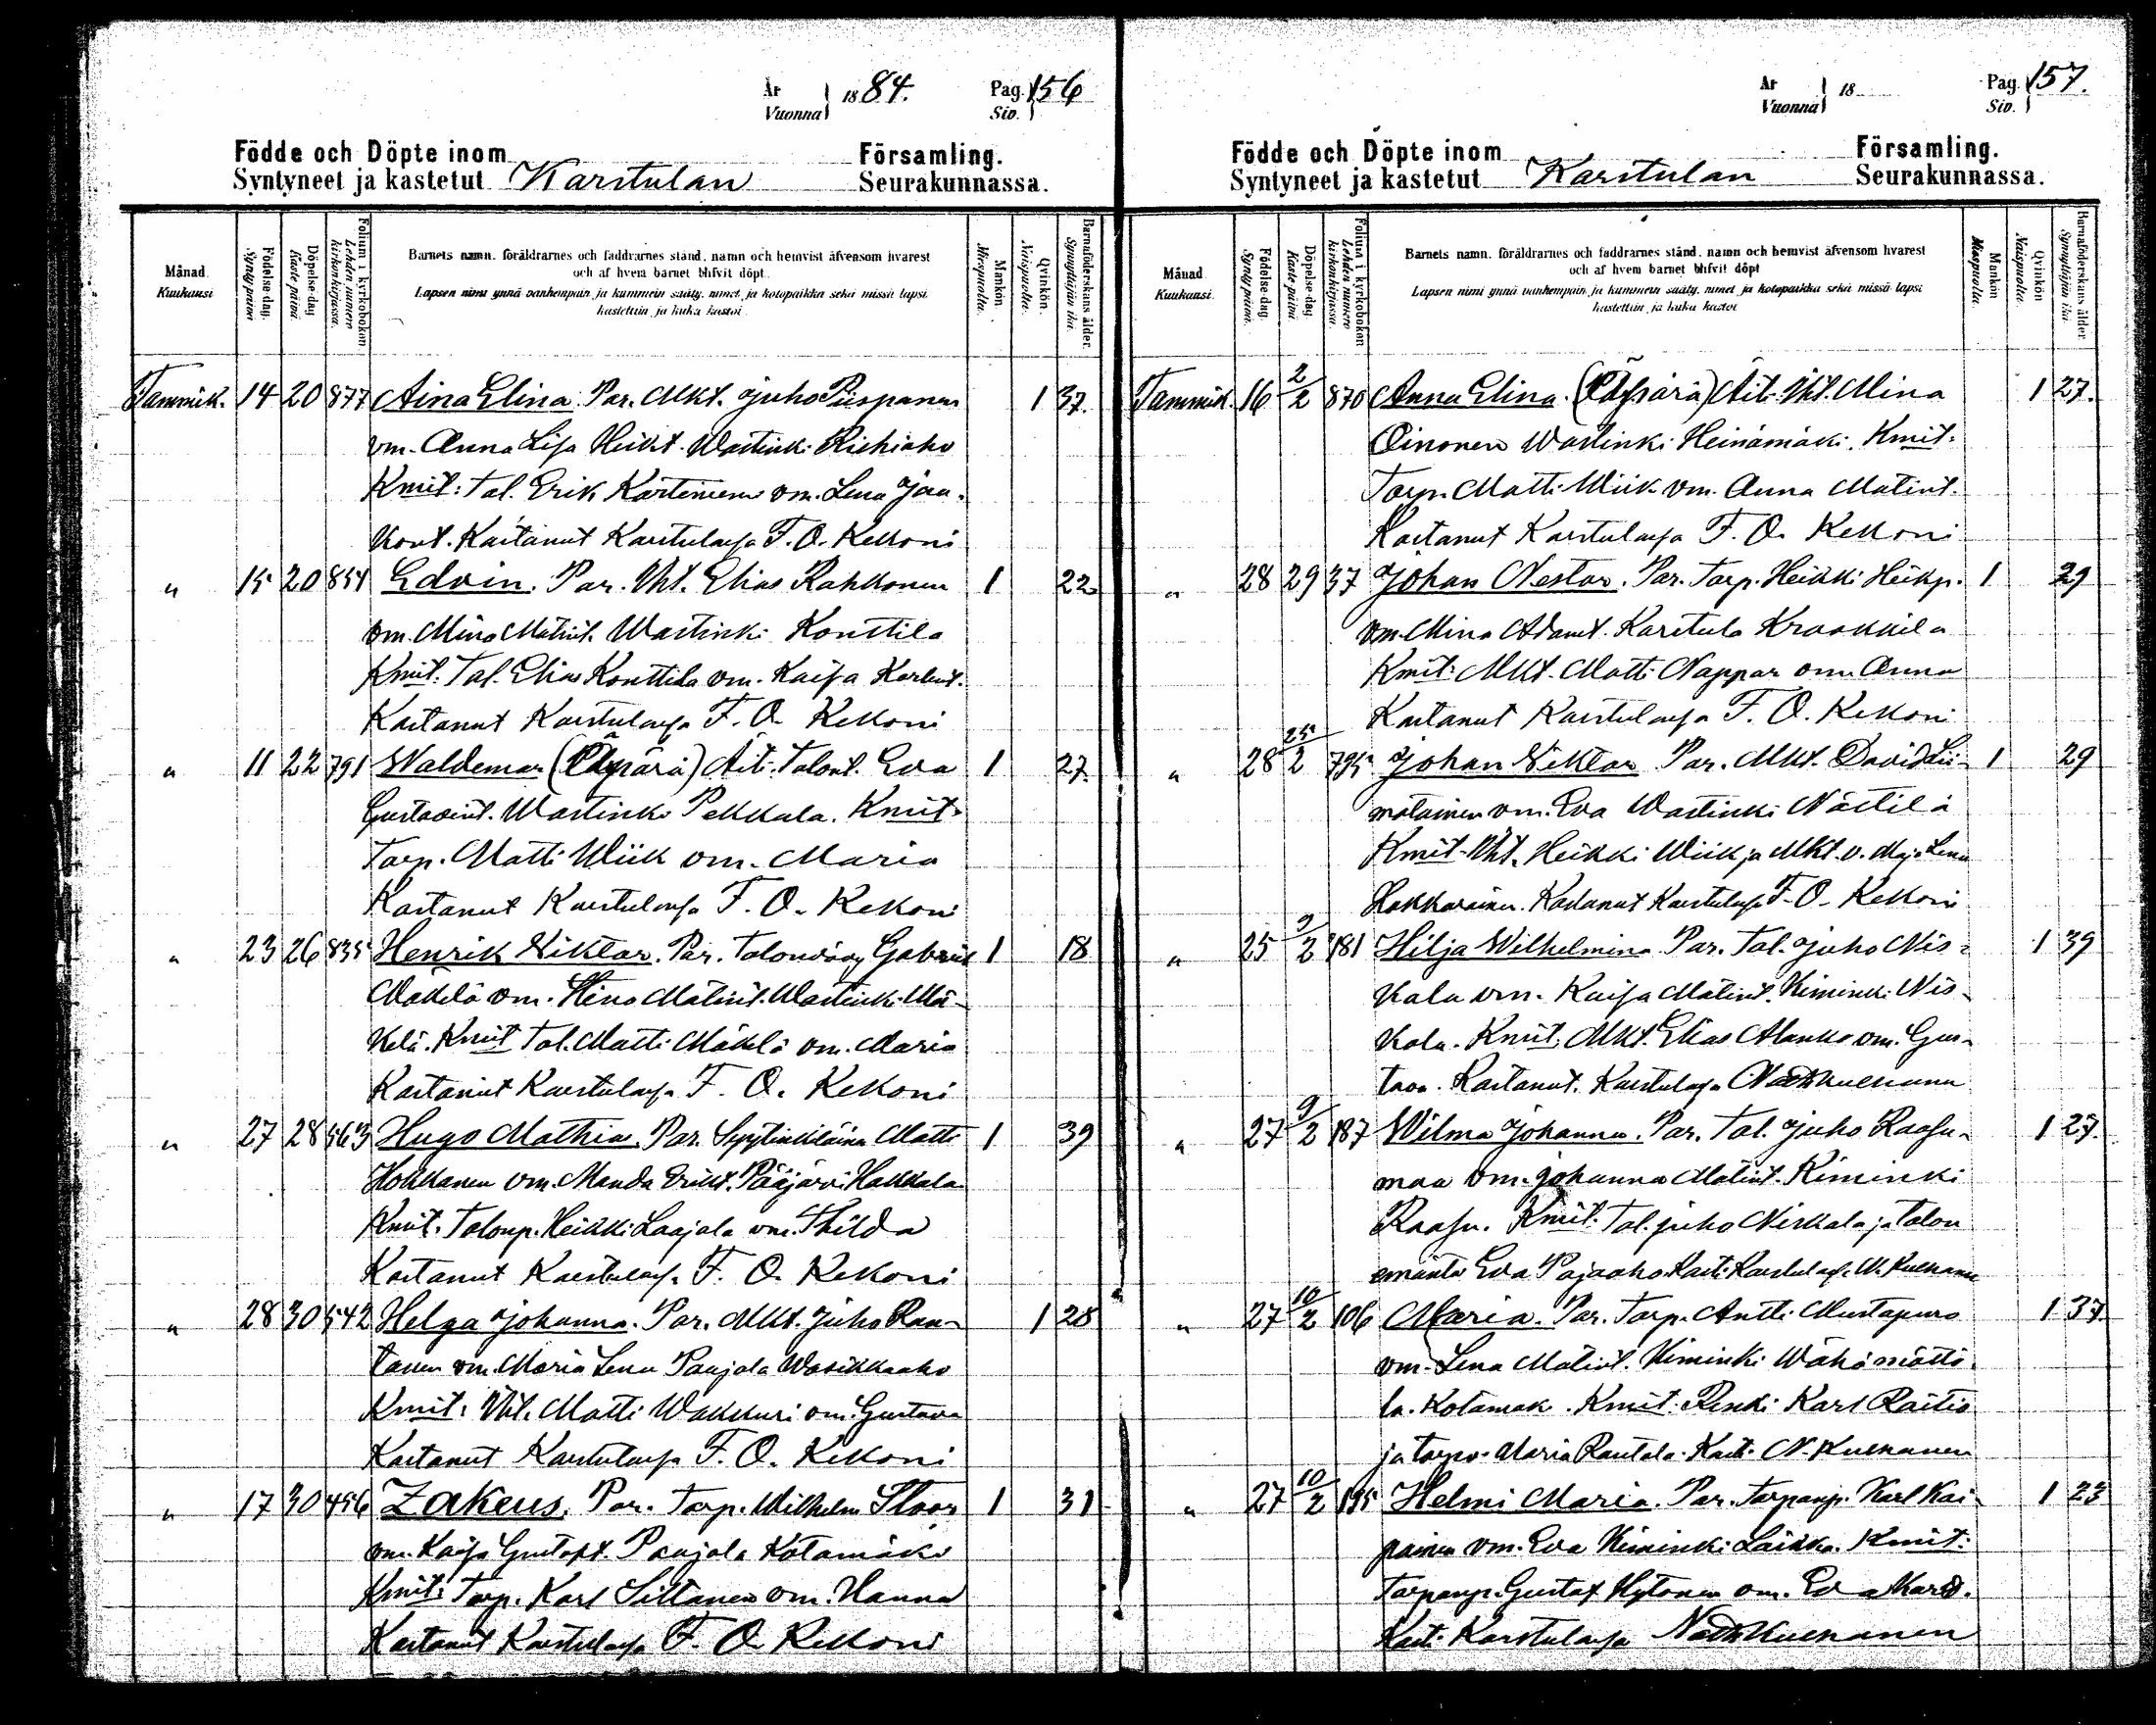 År
Vuonna } 1884. Pag. Siv. } 156
Födde och Döpte inom Församling.
Syntyneet ja kastetut Karstulan Seurakunnassa.
Månad Kuukausi
Födelse-dag. Synty päivä
Döpelse-dag Kaste-päivä
Folium i kyrkoboken Lehden numero kirkonkirjassa.
Barnets namn. föräldrarnes och faddrarnes stånd, namn och hemvist äfvensom hvarest
och af hvem barnet blifvit döpt.
Lapsen nimi ynnä vanhempain ja kummein sääty, nimet ja kotopaikka sekä missä lapsi
kastettiin ja kuka kastoi
Mankön Miespuolia.
Qvinkön. Naispuolia.
Barnaföderskans ålder. Synnyttäjän ikä.
Tammik. 14 20 877 Aina Elina. Par. Mkt. Juho Piispanen 1 37.
vm. Anna Lisa Heikt. Wastinki
Kmit: Tal. Erik vm. Lena Jaa-
kont. Kastanut Karstulassa F. O. Kekoni
" 15 20 854 Edvin. Par. Vht. Elias Rahkonen 1 22
vm. Mina Matint. Wastinki Konttila
Kmit. Tal. Elias Konttila vm. Kaisa
Kastanut Karstulassa F. O. Kekoni
" 11 22 791 Waldemar (Äpärä) Äiti. Talont. Eva 1 27.
Gustavint. Wastinki Pekkala. Kmit.
Torp. Matti Wiik vm. Maria
Kastanut Karstulassa F. O. Kekoni
" 23 26 835 Henrik Niktor. Par. Talonvävy Gabriel 1 18
Mäkelä vm. Stina Matint. Wastinki Mä-
kelä. Kmit Tal. Matti Mäkelä vm. Maria
Kastanut Karstulassa F. O. Kekoni
" 27 28 563 Hugo Mathias. Par. Matti 1 39
Hokkanen vm. Manda Erikt. Pääjärvi Hakkala
Kmit. Talonp. Heikki Laajala vm. Thilda
Kastanut Karstulassa F. O. Kekoni
" 28 30 542 Helga Johanna. Par. Mkt. Juho Ran- 1 28
tanen vm. Maria Lena Paajala Wasikkaaho
Kmit. Vht. Matti Wakkuri vm. Gustava
Kastanut Karstulassa F. O. Kekoni
" 17 30 456 Zakeus. Par. Torp. Wilhelm Stoor 1 31
vm. Kaisa Gustaft. Paajala Kotamäki
Kmit: Torp. Karl Siltanen vm. Hanna
Kastanut Karstulassa F. O. Kekoni
År
Vuonna } 18 Pag. Siv. } 157.
Födde och Döpte inom Församling.
Syntyneet ja kastetut Karstulan Seurakunnassa.
Månad Kuukausi.
Födelse-dag. Synty päivä.
Döpelse-dag Kaste-päivä
Folium i kyrkoboken Lehden numero kirkonkirjassa.
Barnets namn, föräldrarnes och faddrarnes stånd, namn och hemvist äfvensom hvarest
och af hvem barnet blifvit döpt
Lapsen nimi ynnä vanhempain ja kummein sääty, nimet ja kotopaikka sekä missä lapsi
kastettiin ja kuka kastoi
Mankön Miespuolia.
Qvinkön Naispuolia.
Barnaföderskans ålder. Synnyttäjän ikä.
Tammik. 16 2/2 870 Anna Elina. (Äpärä) Äiti. Vht. Mina 1 27.
Oinonen Wastinki Heinämäki. Kmit.
Torp. Matti Wiik vm. Anna Matint.
Kastanut Karstulassa F. O. Kekoni
" 28 29 37 Johan Nestor. Par. Torp. Heikki Heikp. 1 29
vm. Mina Adamt. Karstula Kraakkila
Kmit: Mkt. Matti Nappar vm. Anna
Kastanut Karstulassa F. O. Kekoni
" 28 25/2 795 Johan Niktor Par. Mkt. David Lii- 1 29
matainen vm. Eva Wastinki Nättilä
Kmit. Vht. Heikki Wiik ja Mkt. v. Maja Lena
Hakkarainen. Kastanut Karstulassa F. O. Kekoni
" 25 9/2 181 Hilja Wilhelmina Par. Tal. Juho Nis- 1 39
kala vm. Kaisa Matint. Kiminki Nis-
kala. Kmit. Mkt. Elias Alanko vm. Gus-
tava. Kastanut. Karstulassa
" 27 9/2 187 Wilma Johanna. Par. Tal. Juho Raasu- 1 27.
maa vm. Johanna Matint. Kiminki
Raasu. Kmit. Tal. Juho Niskala ja talon
emäntä Eva Pajaaho
" 27 10/2 106 Maria. Par. Torp. Antti Mustapuro 1 37.
vm. Lena Matint. Kiminki Wähämättö
la. Kotamäk. Kmit. Renki Karl Raitio
ja torpv. Maria Rautala. Kasti N. Kuukanen
" 27 10/2 195 Helmi Maria. Par. Torpanp. Karl Kai- 1 23
painen vm. Eva Kiminki Laikka. Kmit:
Torpanp. Gustaf Hytönen vm. Eva
Kasti Karstulassa